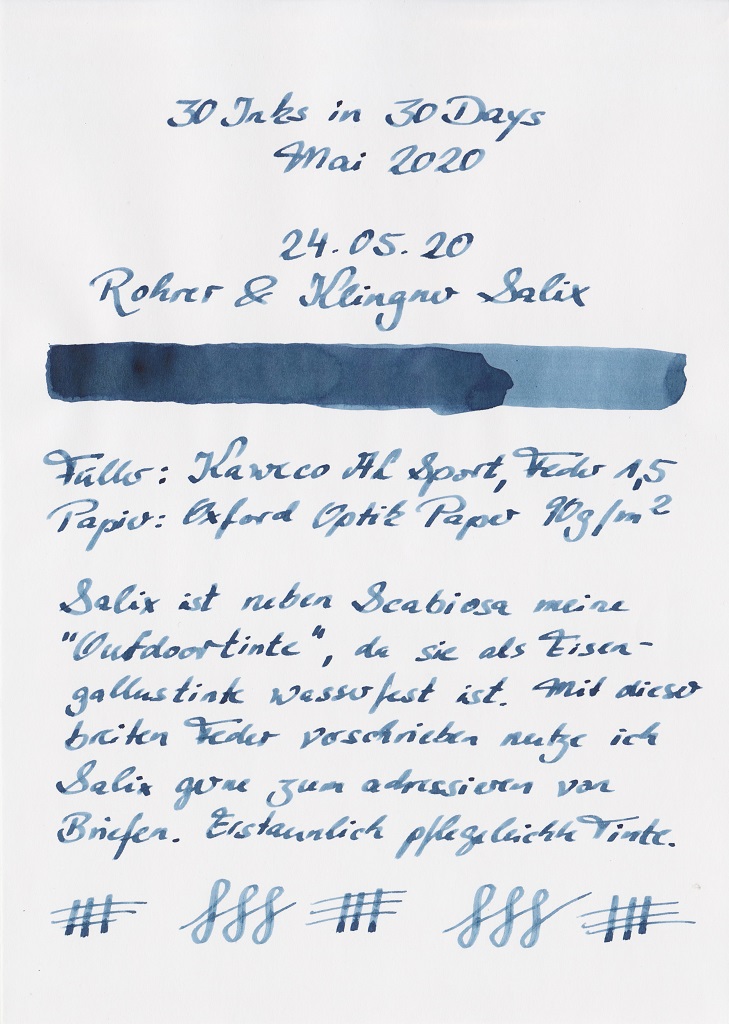 30 Inks in 30 Days
Mai 2020
24.05.20
Rohrer & Klingner Salix
Füller: Kaweco AL Sport, Feder 1,5
Papier: Oxford Optik Paper 90g/m²
Salix ist neben Scabiosa meine
"Outdoortinte", da sie als Eisen-
gallustinte wasserfest ist. Mit dieser
breiten Feder verschrieben nutze ich
Salix gerne zum adressieren von
Briefen. Erstaunlich pflegeleichte Tinte.